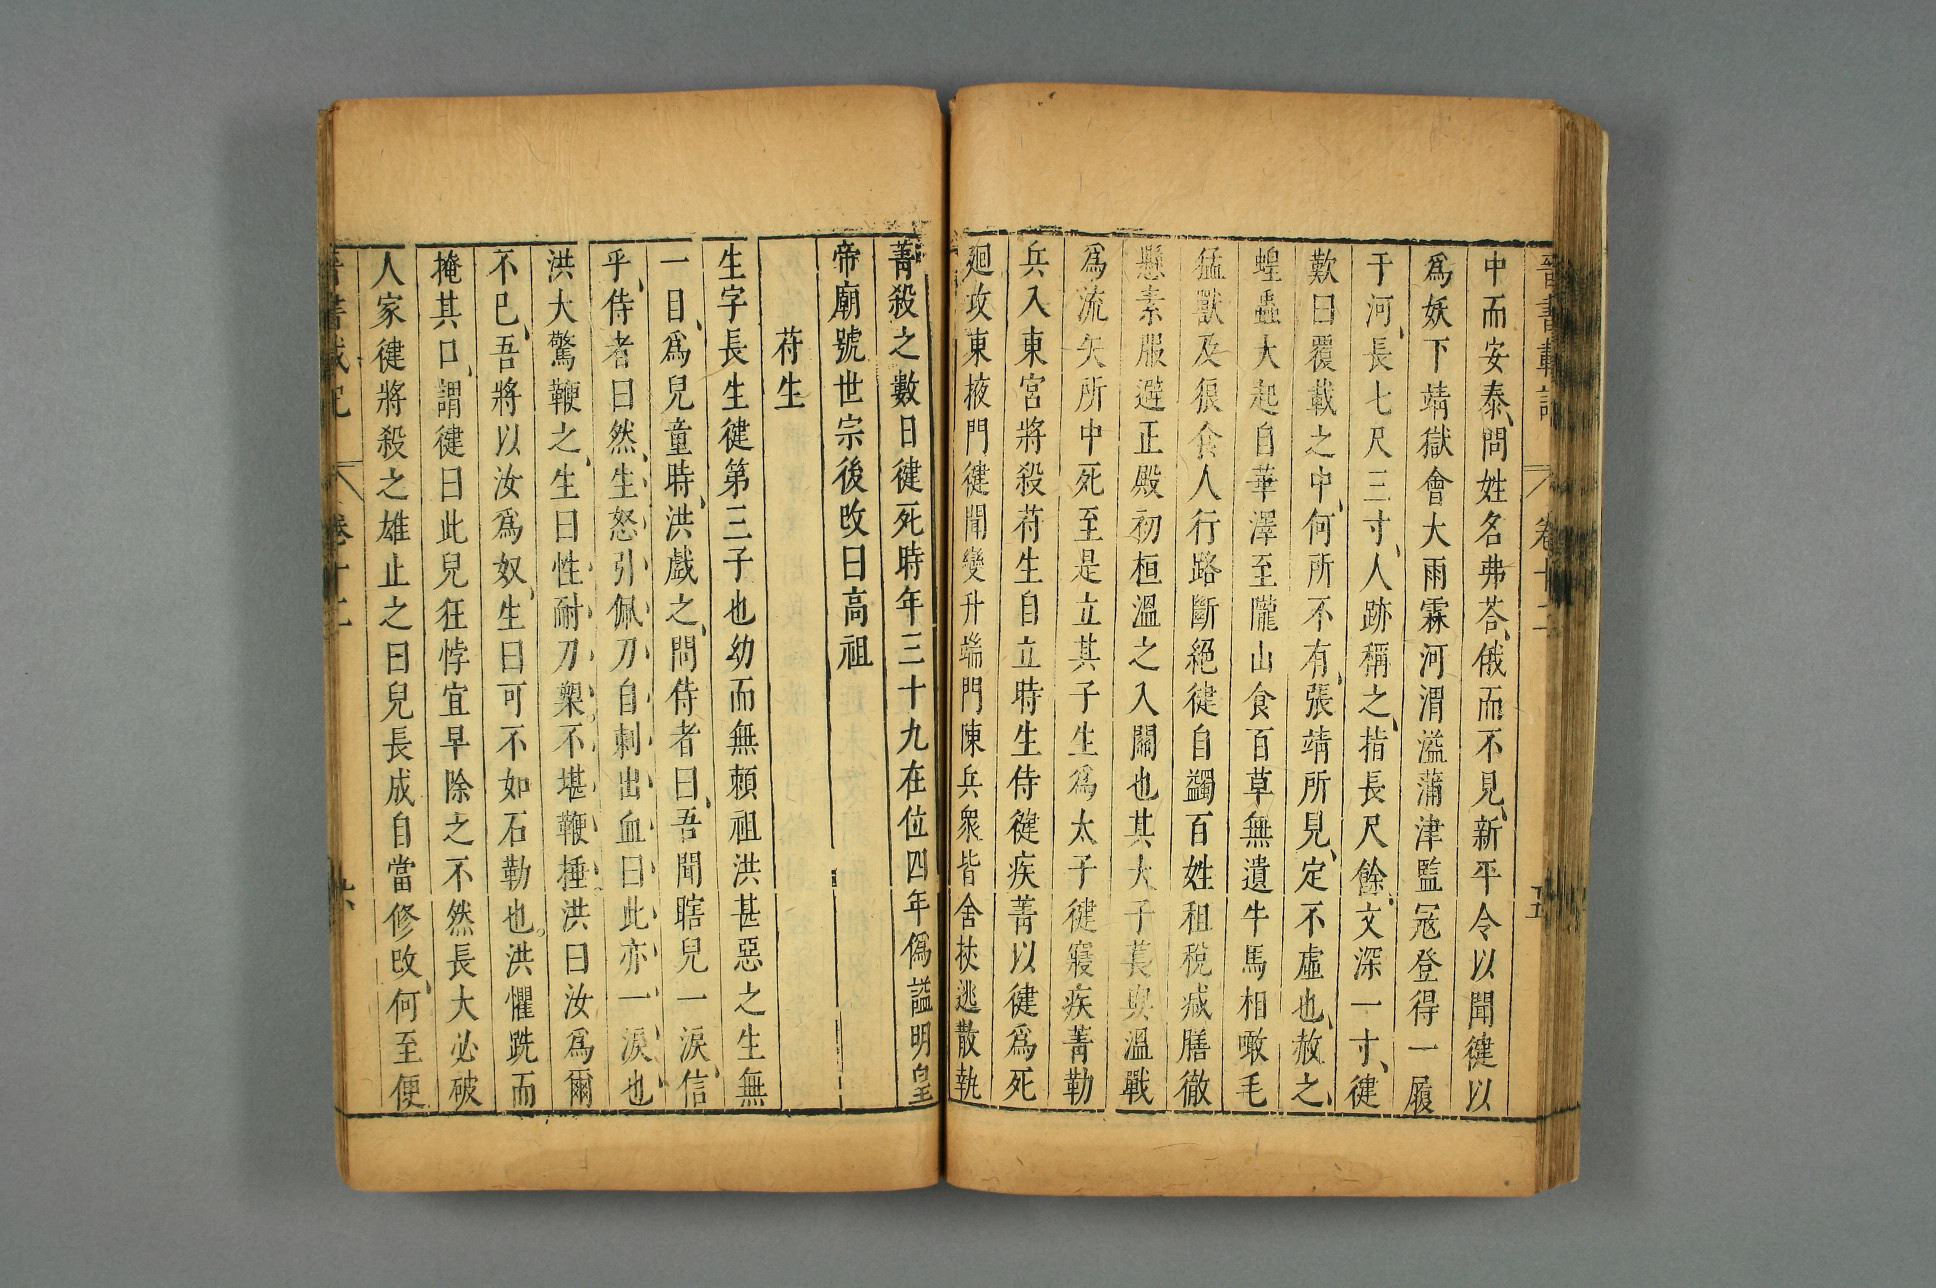 晉書載記 卷十二 五
中而安泰問姓名弗荅俄而不見新平令以聞健以
爲妖下靖獄會大雨霖河渭溢蒲津監冦登得一履
于河長七尺三寸人跡稱之指長尺餘文深一寸健
歎曰覆載之中何所不有張靖所見定不虛也赦之
蝗蟲大起自華澤至隴山食百草無遺牛馬相噉毛
猛獸及狼食人行路斷絕健自蠲百姓租稅减膳徹
懸素服避正殿初桓溫之入關也其大子萇與溫戰
爲流矢所中死至是立其子生爲太子健寢疾菁勒
兵入東宮將殺苻生自立時生侍健疾菁以健爲死
廻攻東掖門健聞變升端門陳兵衆皆舍杖逃散執
菁殺之數日健死時年三十九在位四年僞謚明皇
帝廟號世宗後改曰高祖
苻生
生字長生健第三子也幼而無賴祖洪甚惡之生無
一目爲兒童時洪戲之問侍者曰吾聞瞎兒一淚信
乎侍者曰然生怒引佩刀自刺出血曰此亦一淚也
洪大驚鞭之生曰性耐刀槊不堪鞭捶洪曰汝爲爾
不已吾將以汝爲奴生曰可不如石勒也洪懼跣而
掩其口謂健曰此兒狂悖宜早除之不然長大必破
人家健將殺之雄止之曰兒長成自當修改何至便
晉書載記 卷十二 六